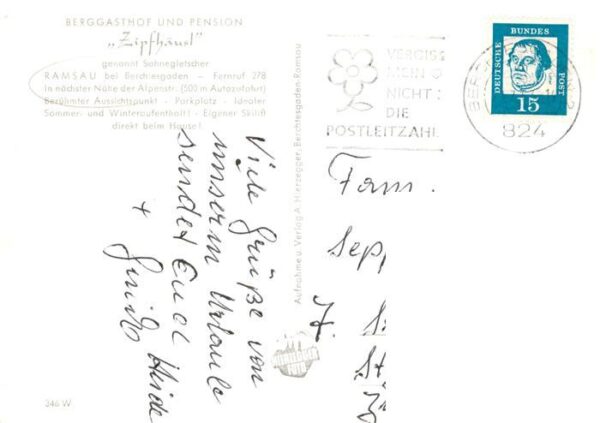 BERGGASTHOF UND PENSION
„Zipfhäusl"
genannt Sahnegletscher
RAMSAU bei Berchtesgaden – Fernruf 278
In nächster Nähe der Alpenstr. (500 m Autozufahrt)
Berühmter Aussichtspunkt - Parkplatz - Idealer
Sommer- und Winteraufenthalt! - Eigener Skilift
direkt beim Hause!
VERGISS
MEIN
NICHT:
DIE
POSTLEITZAHL
DEUTSCHE
BUNDES
POST
15
824
Viele Grüße von
unserm Urlaub
sendet Euch
+ Heide
Aufnahme u. Verlag A. Hierzegger, Berchtesgaden-Ramsau
Fam.
Sepp
346 W